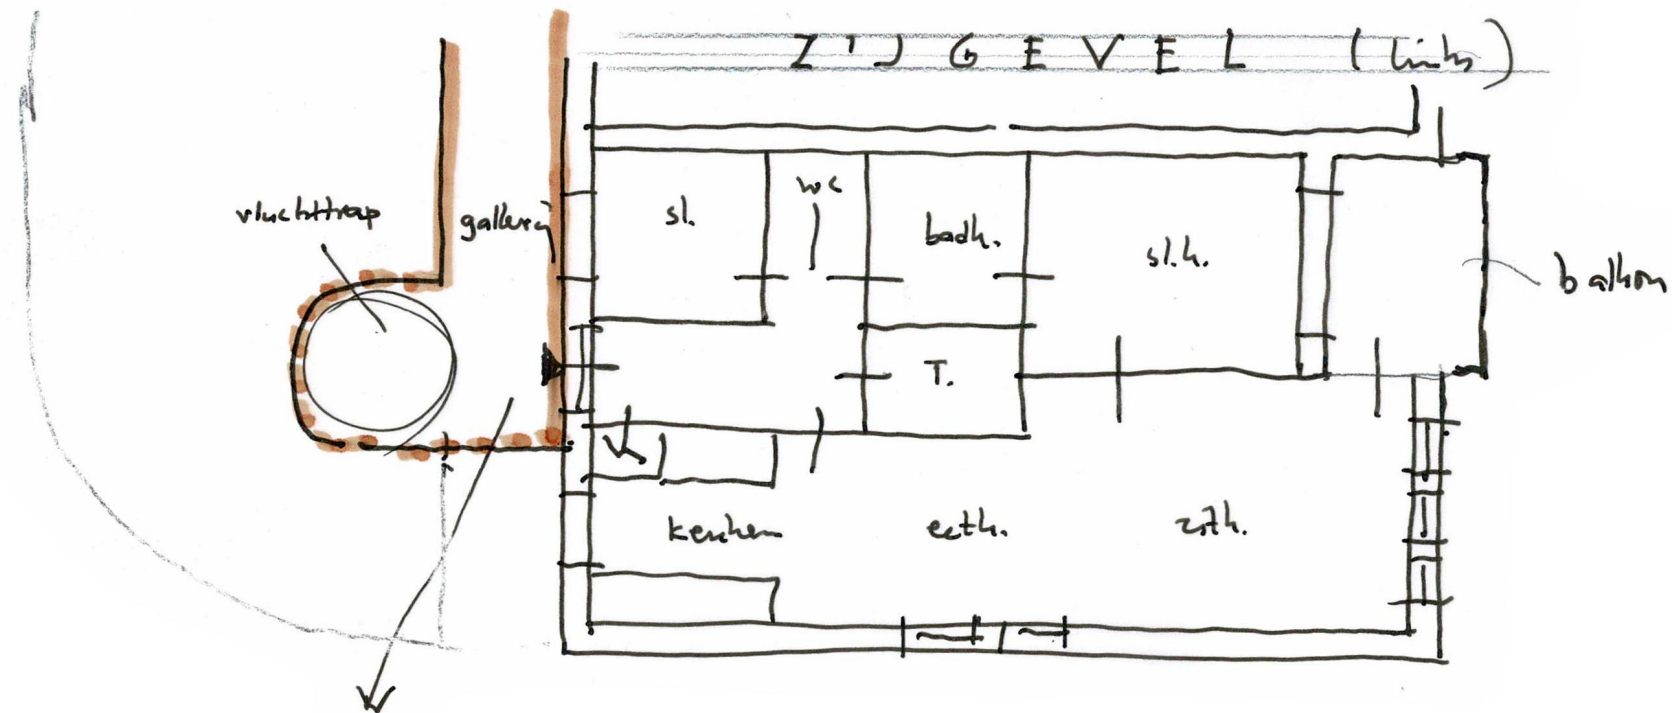 ZIJGEVEL (links)
wc
vluchttrap
gallerij
sl.
badh.
sl.k.
balkon
T.
keuken
eeth.
zith.